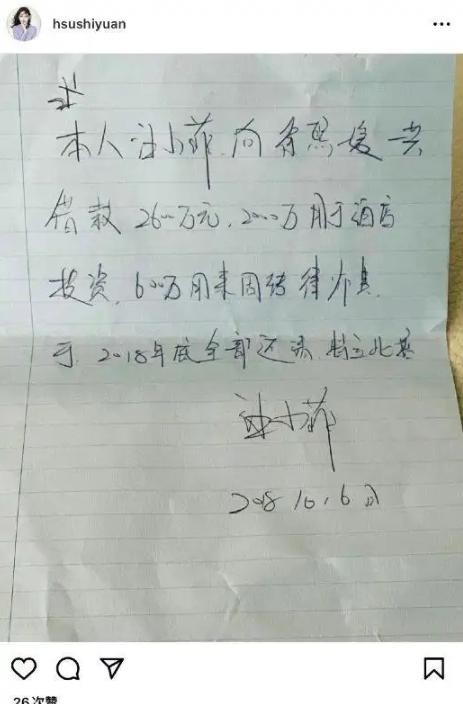 hsushiyuan
本人汪小菲,向徐熙媛共
借款2600万元,2000万用于酒店
投资,600万用来周转
于2018年底全部还清,特立此据
汪小菲
2018 10.6日
26次赞